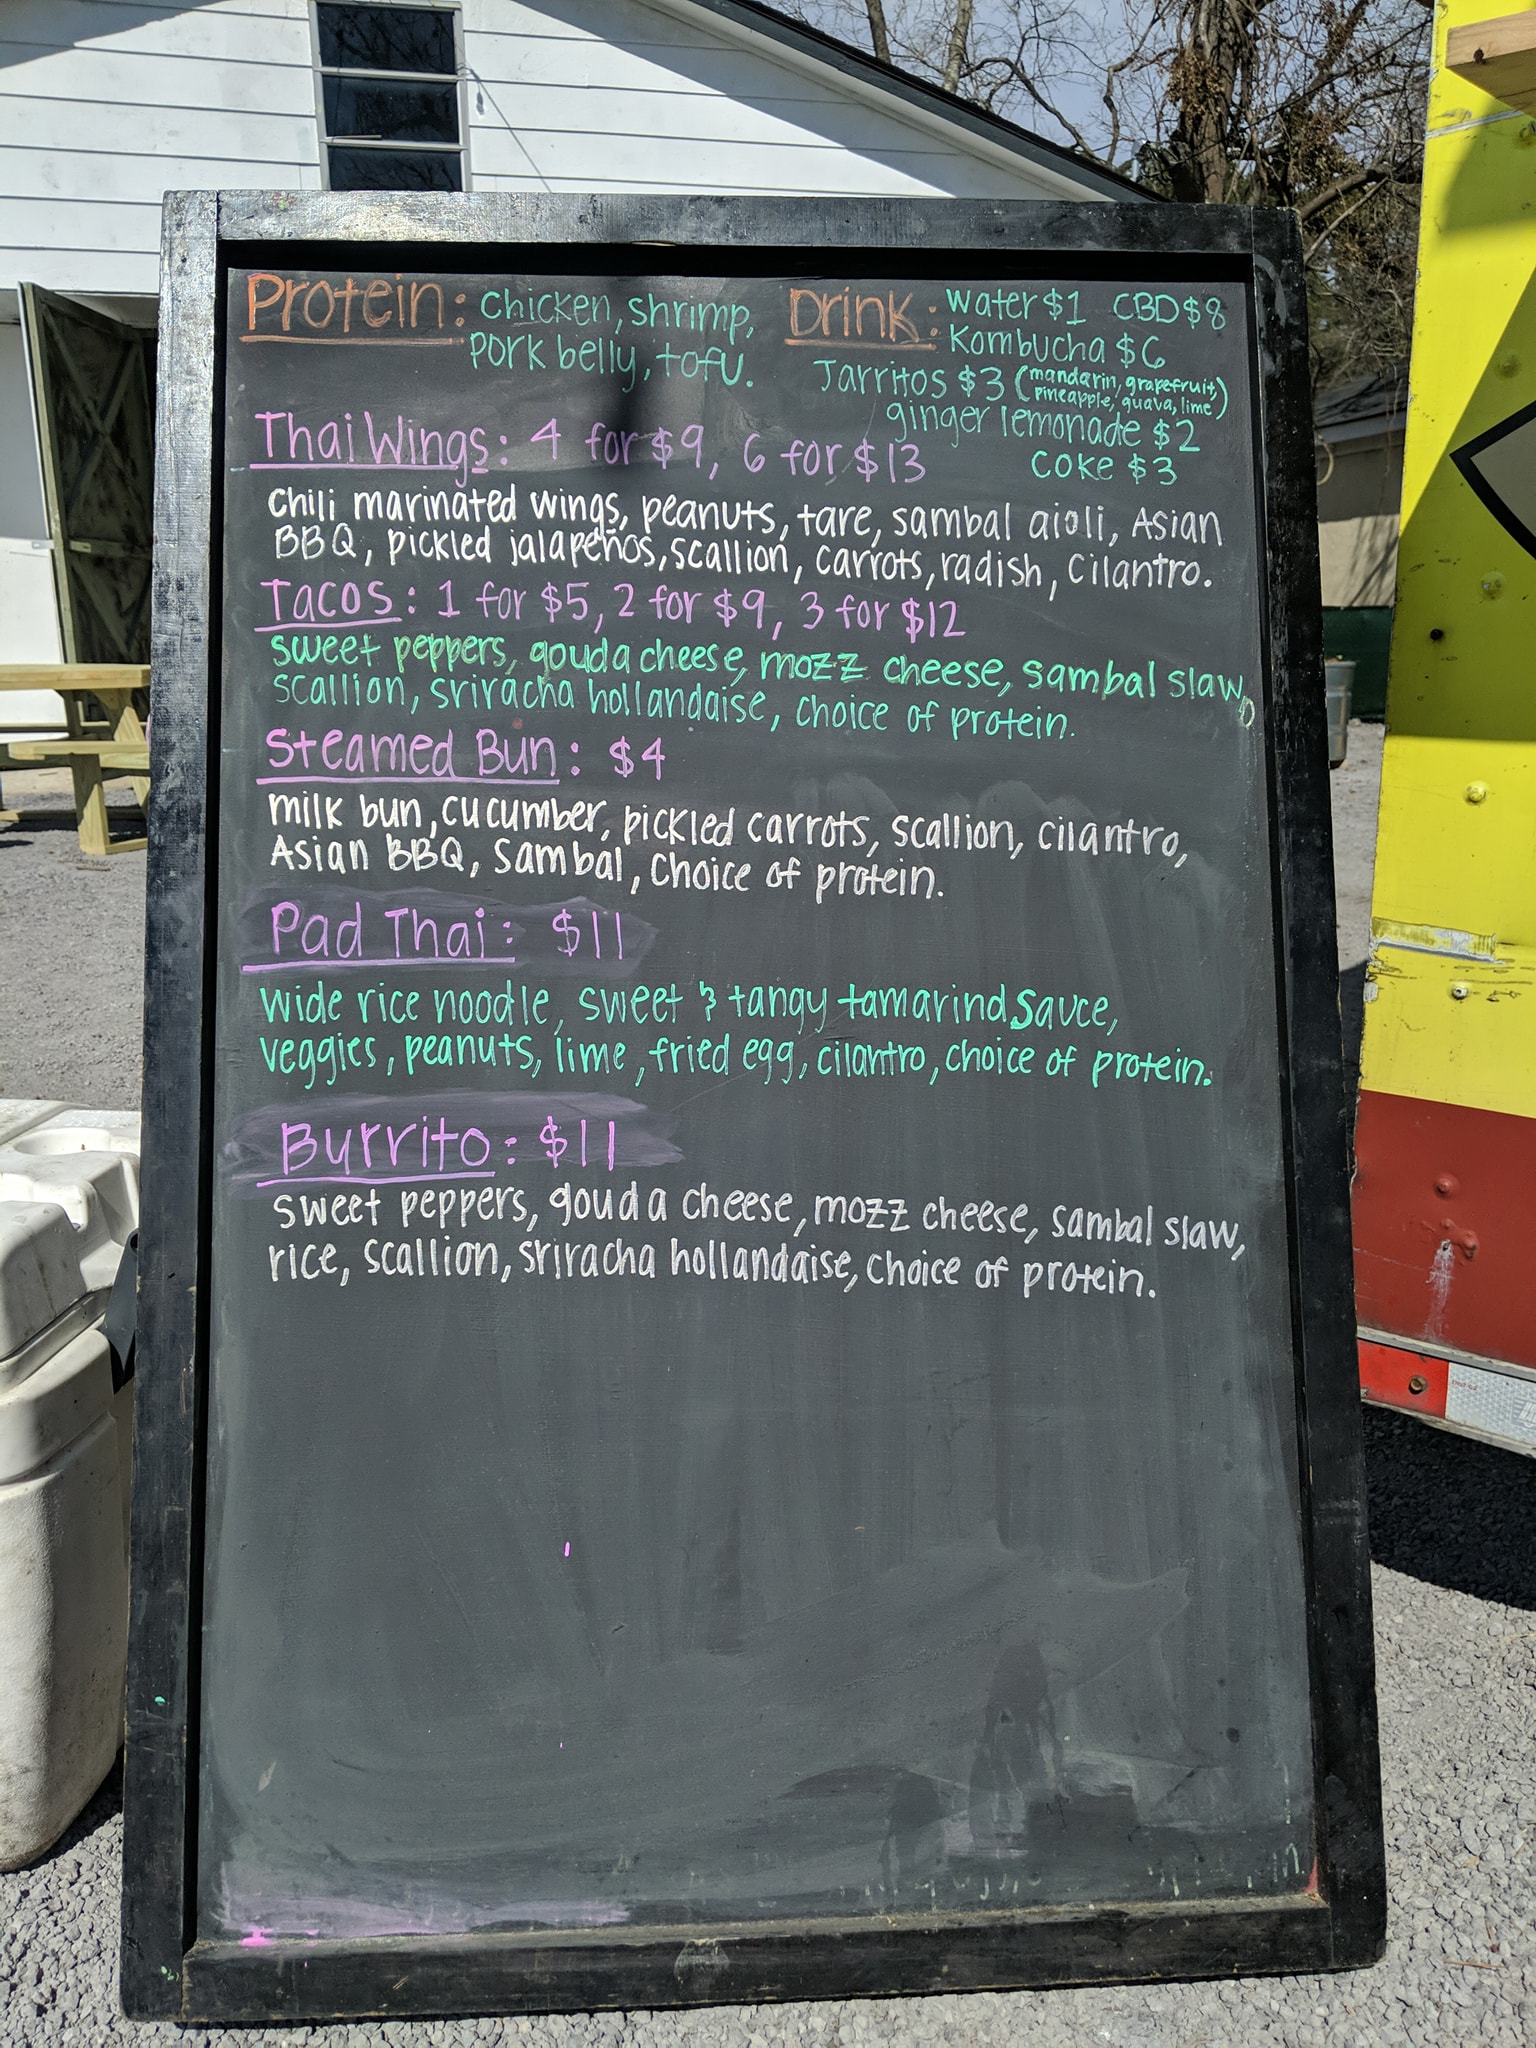 Protein: chicken, shrimp,
pork belly, tofu.
Drink: Water $1 CBD $8
Kombucha $6
Jarritos $3 (mandarin, grapefruit,
pineapple, guava, lime)
ginger lemonade $2
Coke $3
Thai Wings: 4 for $9, 6 for $13
chili marinated wings, peanuts, tare, sambal aioli, Asian
BBQ, pickled jalapeños, scallion, carrots, radish, cilantro.
Tacos: 1 for $5, 2 for $9, 3 for $12
sweet peppers, gouda cheese, mozz cheese, sambal slaw,
scallion, sriracha hollandaise, choice of protein.
Steamed Bun: $4
milk bun, cucumber, pickled carrots, scallion, cilantro,
Asian BBQ, Sambal, choice of protein.
Pad Thai: $11
wide rice noodle, sweet & tangy tamarind sauce,
veggies, peanuts, lime, fried egg, cilantro, choice of protein.
Burrito: $11
sweet peppers, gouda cheese, mozz cheese, sambal slaw,
rice, scallion, sriracha hollandaise, choice of protein.